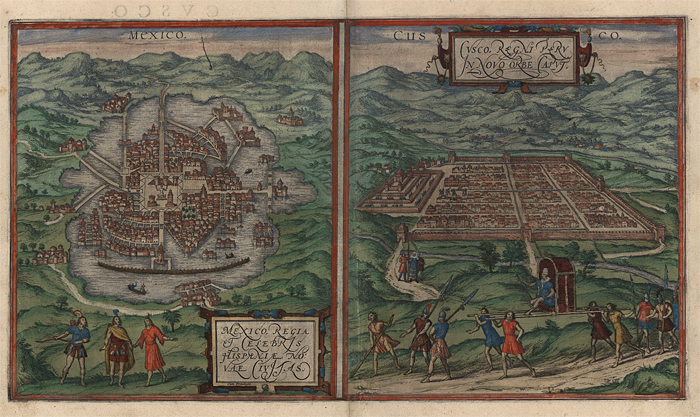 CVSCO
MEXICO.
CUS CO.
CVSCO, REGNI PERV
IN NOVO ORBE CAPVT.
MEXICO, REGIA
ET CELEBRIS
HISPANIÆ NO
VAE CIVITAS.